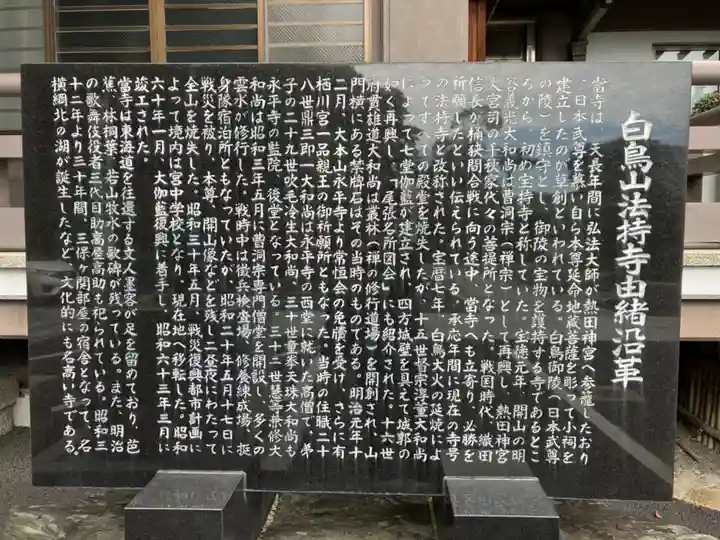 白鳥山法持寺由緒沿革
當寺は、天長年間に弘法大師が熱田神宮へ参籠したおり
、日本武尊を慕い自ら本尊延命地蔵菩薩を彫って小祠を
建立したのが草創といわれている。白鳥御陵(日本武尊
の陵)を鎮守とし、御陵の宝物を護持する寺であるとこ
ろから、初め宝持寺と称していた。宝徳元年、開山の明
谷義光大和尚は曹洞宗(禅宗)として再興し、熱田神宮
大宮司の千秋家代々の菩提所となった。戦国時代、織田
信長が桶狭間合戦に向う途中、當寺へも立寄り、必勝を
祈願したといい伝えられている。承応年間に現在の寺号
の法持寺と改称された。宝暦七年、白鳥大火の延焼によ
ってすべての殿堂を焼失したが、十五世普宗淳重大和尚
によって七堂伽藍が建立され、四方城壁を具えて城郭の
如く再興し、「尾張名所図会」にも紹介された。十六世
府貫雄道大和尚は叢林(禅の修行道場)を開創され、山
門横にある禁牌石はその当時のものである。明治元年十
二月、大本山永平寺より常恒会の免牘を受け、さらに有
栖川宮一品親王の御祈願所ともなった。当時の住職二十
八世鼎三即一大和尚は永平寺の西堂に就いた高僧で、弟
子の二十九世吹毛冷生大和尚、三十世童拳天珠大和尚も
永平寺の監院、後堂となっている。三十二世慧等兼修大
和尚は昭和三年五月に曹洞宗専門僧堂を開設し、多くの
雲水が修行した。戦時中は徴兵検査場、修養練成場、挺
身隊宿泊所ともなっていたが、昭和二十年五月十七日に
戦災を被り、本尊、開山像などを残し二昼夜にわたって
全山を焼失した。昭和三十年五月、戦災復興都市計画に
よって境内は宮中学校となり、現在地へ移転した。昭和
六十年一月、大伽藍復興に着手し、昭和六十三年三月に
竣工された。
當寺は東海道を往還する文人墨客が足を留めており、芭
蕉、林桐葉、若山牧水の歌碑が残っている。また、明治
の歌舞伎役者三代目助高屋高助も祀られている。昭和三
十二年より三十年間、三保ヶ関部屋の宿舎となって、名
横綱北の湖が誕生したなど、文化的にも名高い寺である。